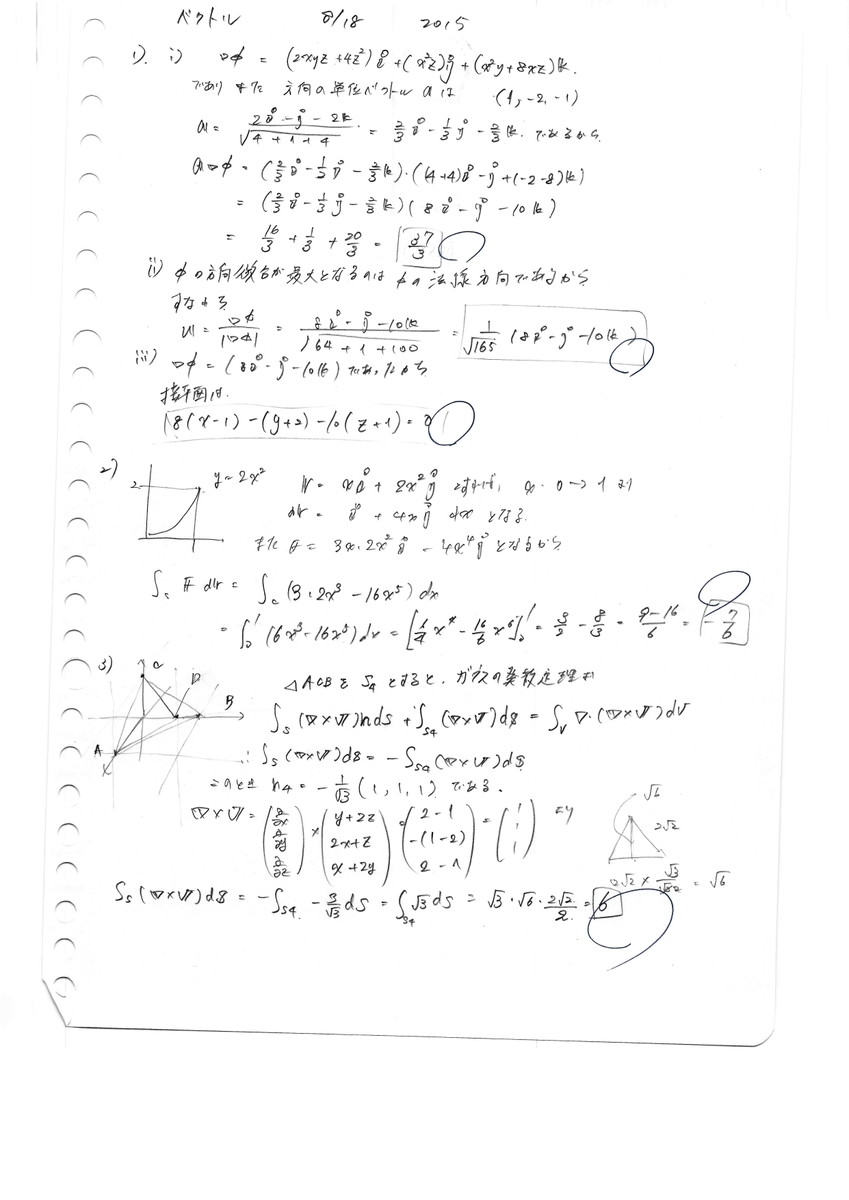 ベクトル 8/18 2015
1). i) ∇φ = (2xyz+4z²)i + (x²z)j + (x²y+8xz)k.
であり また 方向の単位ベクトル a は (1, -2, -1)
a = (2i - j - 2k)/√(4+1+4) = 2/3 i - 1/3 j - 2/3 k. であるから
a∇φ = (2/3 i - 1/3 j - 2/3 k)・((4+4)i - j + (-2-8)k)
= (2/3 i - 1/3 j - 2/3 k)(8i - j - 10k)
= 16/3 + 1/3 + 20/3 = 37/3
ii) φの方向微分が最大となるのは φの法線方向であるから
すなわち
u = ∇φ/|∇φ| = (8i - j - 10k)/√(64+1+100) = 1/√165 (8i - j - 10k)
iii) ∇φ = (8i - j - 10k) であったから
接平面は.
8(x-1) - (y+2) - 10(z+1) = 0
2) 2 y=2x² r = xi + 2x²j とすれば, x: 0→1 より
dr = i + 4xj dx となる.
また F = 3x・2x² i - 4x⁴ j となるから
∫c F dr = ∫c (3・2x³ - 16x⁵) dx
= ∫₀¹ (6x³ - 16x⁵) dx = [6/4 x⁴ - 16/6 x⁶]₀¹ = 3/2 - 8/3 = (9-16)/6 = -7/6
3) C D B A x
△ACBを S₄ とすると、ガウスの発散定理より
∫s (∇×v)n ds + ∫s₄ (∇×v) ds = ∫v ∇・(∇×v) dv
∴ ∫s (∇×v) ds = -∫s₄ (∇×v) ds
このとき n₄ = -1/√3 (1, 1, 1) である.
∇×v = (∂/∂x, ∂/∂y, ∂/∂z) × (y+2z, 2x+z, x+2y) = (2-1, -(1-2), 2-1) = (1, 1, 1) より
√6 2√2
2√2 × √3/2 = √6
∫s (∇×v) ds = -∫s₄ -3/√3 ds = ∫s₄ √3 ds = √3・√6・2√2/2 = 6